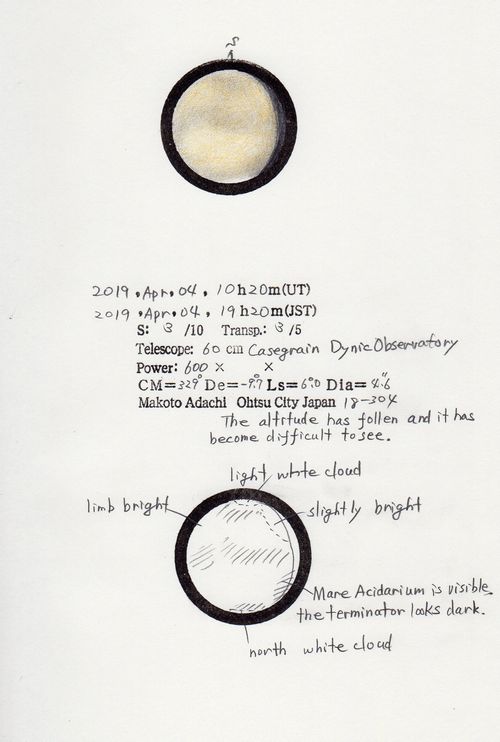 S
2019, Apr, 04, 10h20m(UT)
2019, Apr, 04, 19h20m(JST)
S: 3 /10 Transp.: 3 /5
Telescope: 60 cm Casegrain Dynic Observatory
Power: 600 × ×
CM=329° De=-9.°7 Ls=6.°0 Dia=4."6
Makoto Adachi Ohtsu City Japan 18-304
The altitude has follen and it has
become difficult to see.
light white cloud
limb bright
slightly bright
Mare Acidarium is visible.
the terminator looks dark.
north white cloud